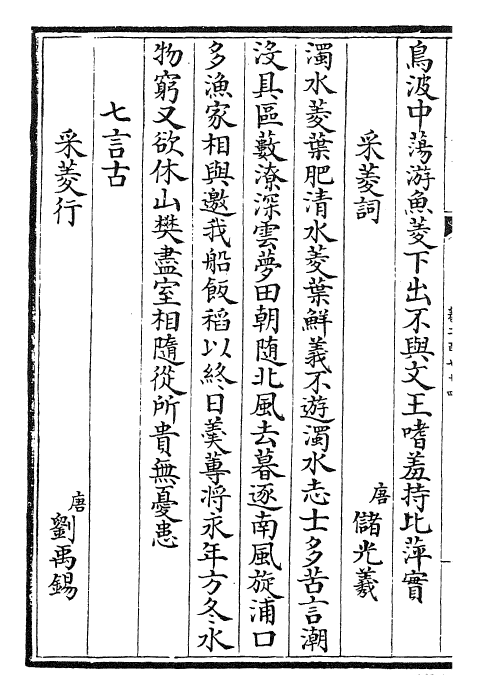 鳥波中蕩游魚菱下出不與文王嗜羞持比萍實
采菱詞 唐 儲光羲
濁水菱葉肥清水菱葉鮮義不遊濁水志士多苦言潮
沒具區藪潦深雲夢田朝随北風去暮逐南風旋浦口
多漁家相與邀我船飯稻以終日羮蓴将永年方冬水
物窮又欲休山樊盡室相隨從所貴無憂患
七言古
采菱行 唐 劉禹錫